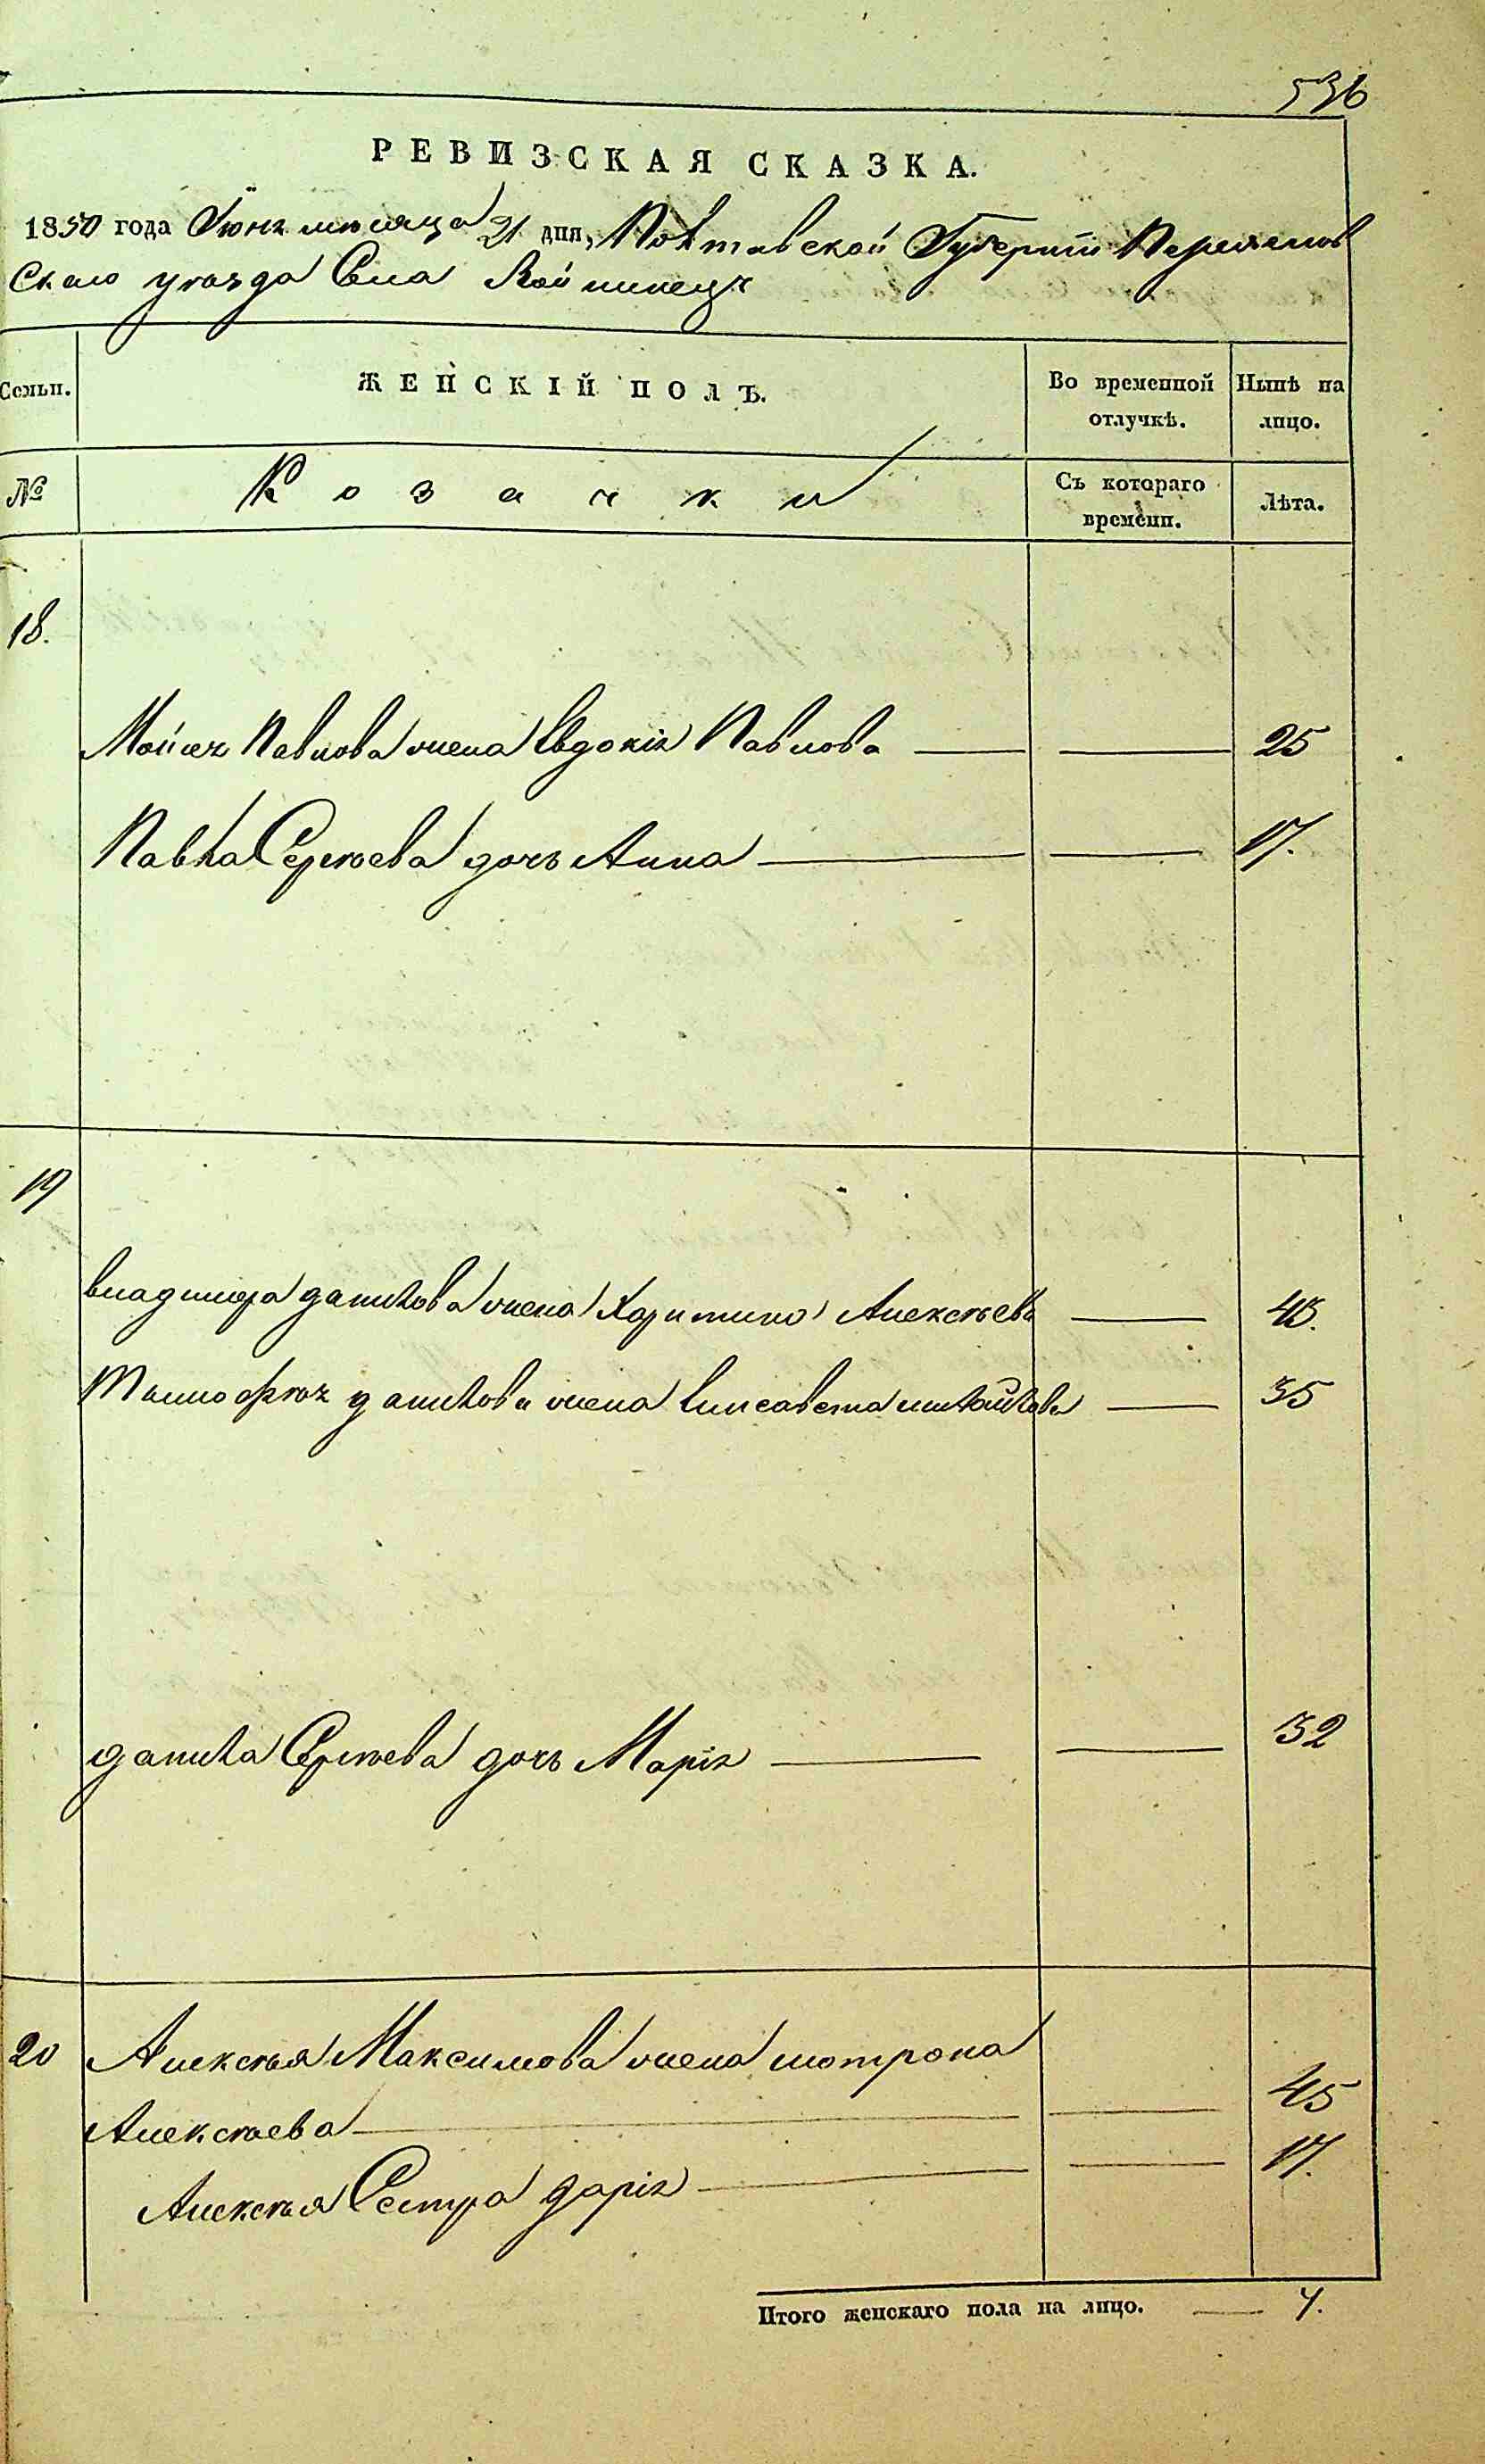 536
РЕВИЗСКАЯ СКАЗКА.
1850 года Іюня мѣсяца 21 дня, Полтавской Губерніи Переяслов
Скаго уѣзда Села Войтовецъ
Семьи.
ЖЕНСКІЙ ПОЛЪ.
Во временной отлучкѣ.
Нынѣ на лицо.
№
Козачки
Съ котораго времени.
Лѣта.
18.
Мойсея Павлова жена Евдокія Павлова 25
Павла Сергѣева дочь Анна 17.
19
Владимера данилова жена Харитина Алексѣева
Тимофея данилова жена Елисавета михайлова 35
данила Сергѣева дочь Марія 32
20 Алексѣя Максимова жена мотрона
Алексѣева 45
Алексѣя Сестра дарія 17.
Итого женскаго пола на лицо. 7.